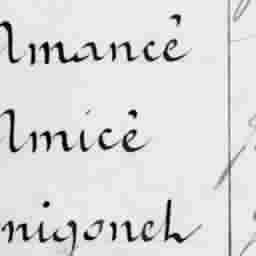 Amancé
Amicé
nigonch